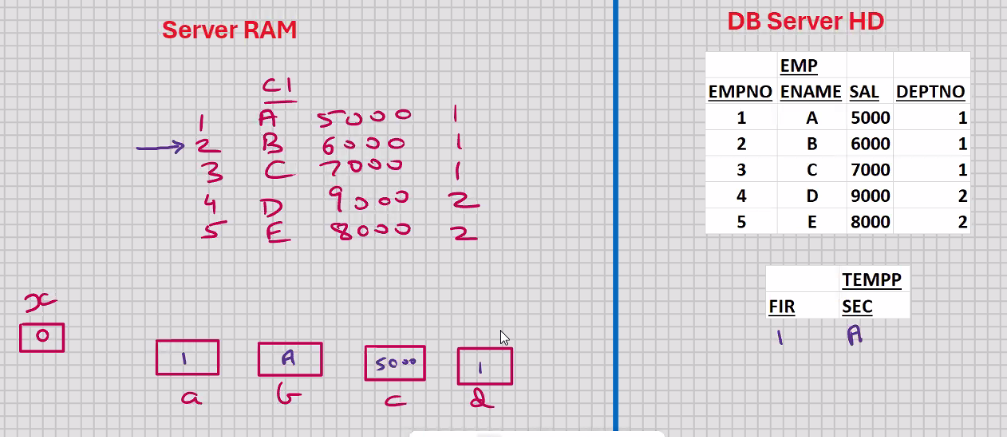 Server RAM
DB Server HD
C1
1 A 5000 1
2 B 6000 1
3 C 7000 1
4 D 9000 2
5 E 8000 2
x
0
1 A 5000 1
a b c d
EMP
EMPNO ENAME SAL DEPTNO
1 A 5000 1
2 B 6000 1
3 C 7000 1
4 D 9000 2
5 E 8000 2
TEMPP
FIR SEC
1 A